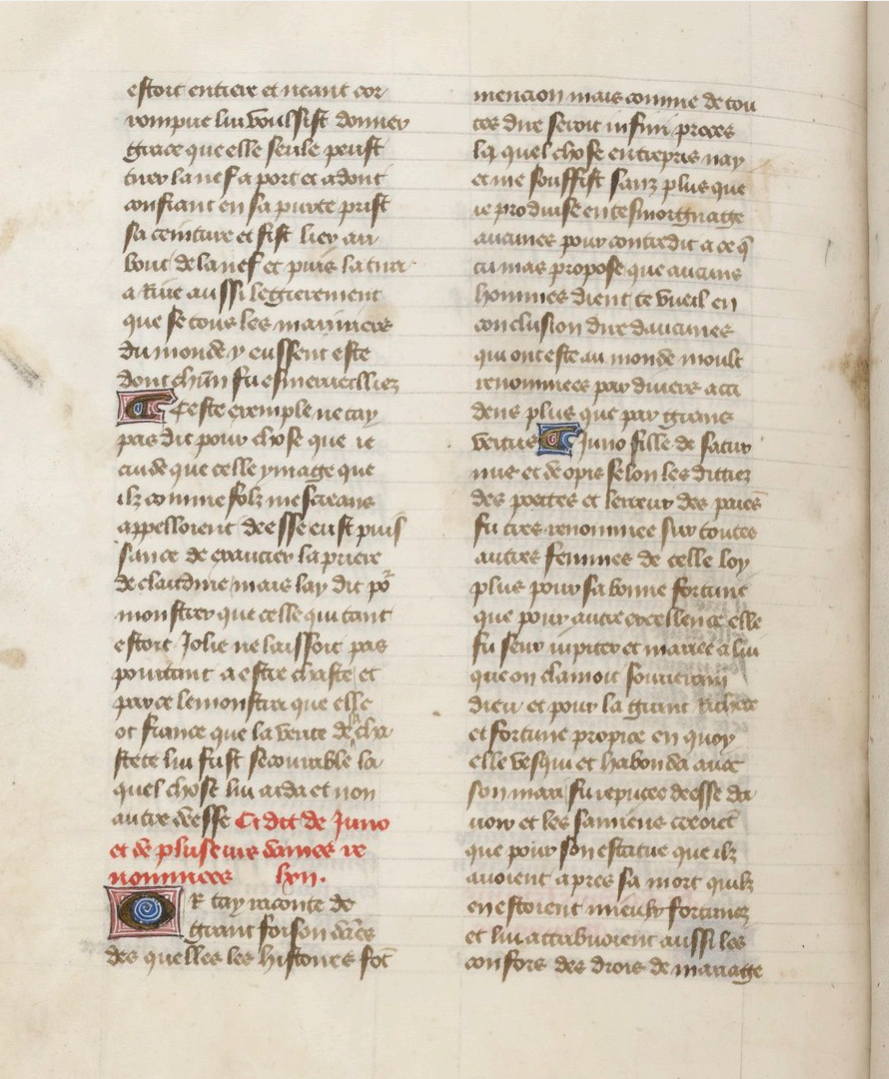 estoit entiere et neant cor
rompue lui voulsist donner
grace que elle seule peust
tirer la nef a port et adont
confiant en sa purte prist
sa ceinture et fist lier au
bout de la nef et puis la tira
a Rive aussi legierement
que se tous les mariniers
du monde y eussent este
dont chūn fu esmerveilliez
Ceste exemple ne tay
pas dit pour chose que ie
cuide que celle ymage que
ilz comme folz mescreans
appelloient deesse eust puis
sance de exaucier la priere
de claudine mais lay dit po᷑
monstrer que celle qui tant
estoit Jolie ne laissoit pas
pourtant a estre chaste et
par ce le monstra que elle
ot fiance que la verite de cha
stete lui fust secourable la
quel chose lui aida et non
autre deesse Ci dit de Juno
et de pluseurs dames re
nommees lxii.
OR tay raconte de
grant foison dāes
des quelles les histoires fōt
mencion mais comme de tou
tes dire seroit infini proces
lq̄ quel chose entrepris nay
et me souffist sanz plus que
ie produise en tesmoignage
aucunes pour contredit a ce q̄
tu mas propose que aucuns
hommes dient te vueil en
conclusion dire daucunes
qui ont este au monde moult
renommees par divers acci
dens plus que par grans
vertus Juno fille de satur
nus et de opis selon les dittiez
des poettes et lerreur des paiēs
fu tres renommee sur toutes
autres femmes de celle loy
plus pour sa bonne fortune
que pour autre excellence elle
fu seur iupiter et mariee a lui
que on clamoit souverain
dieu et pour la grant richece
et fortune propice en quoy
elle vesqui et habonda avec
son mari fu reputee deesse da
voir et les samiens creoiēt
que pour son estatue que ilz
avoient apres sa mort quilz
en estoient mieulx fortunez
et lui attribuoient aussi les
confors des drois de mariage